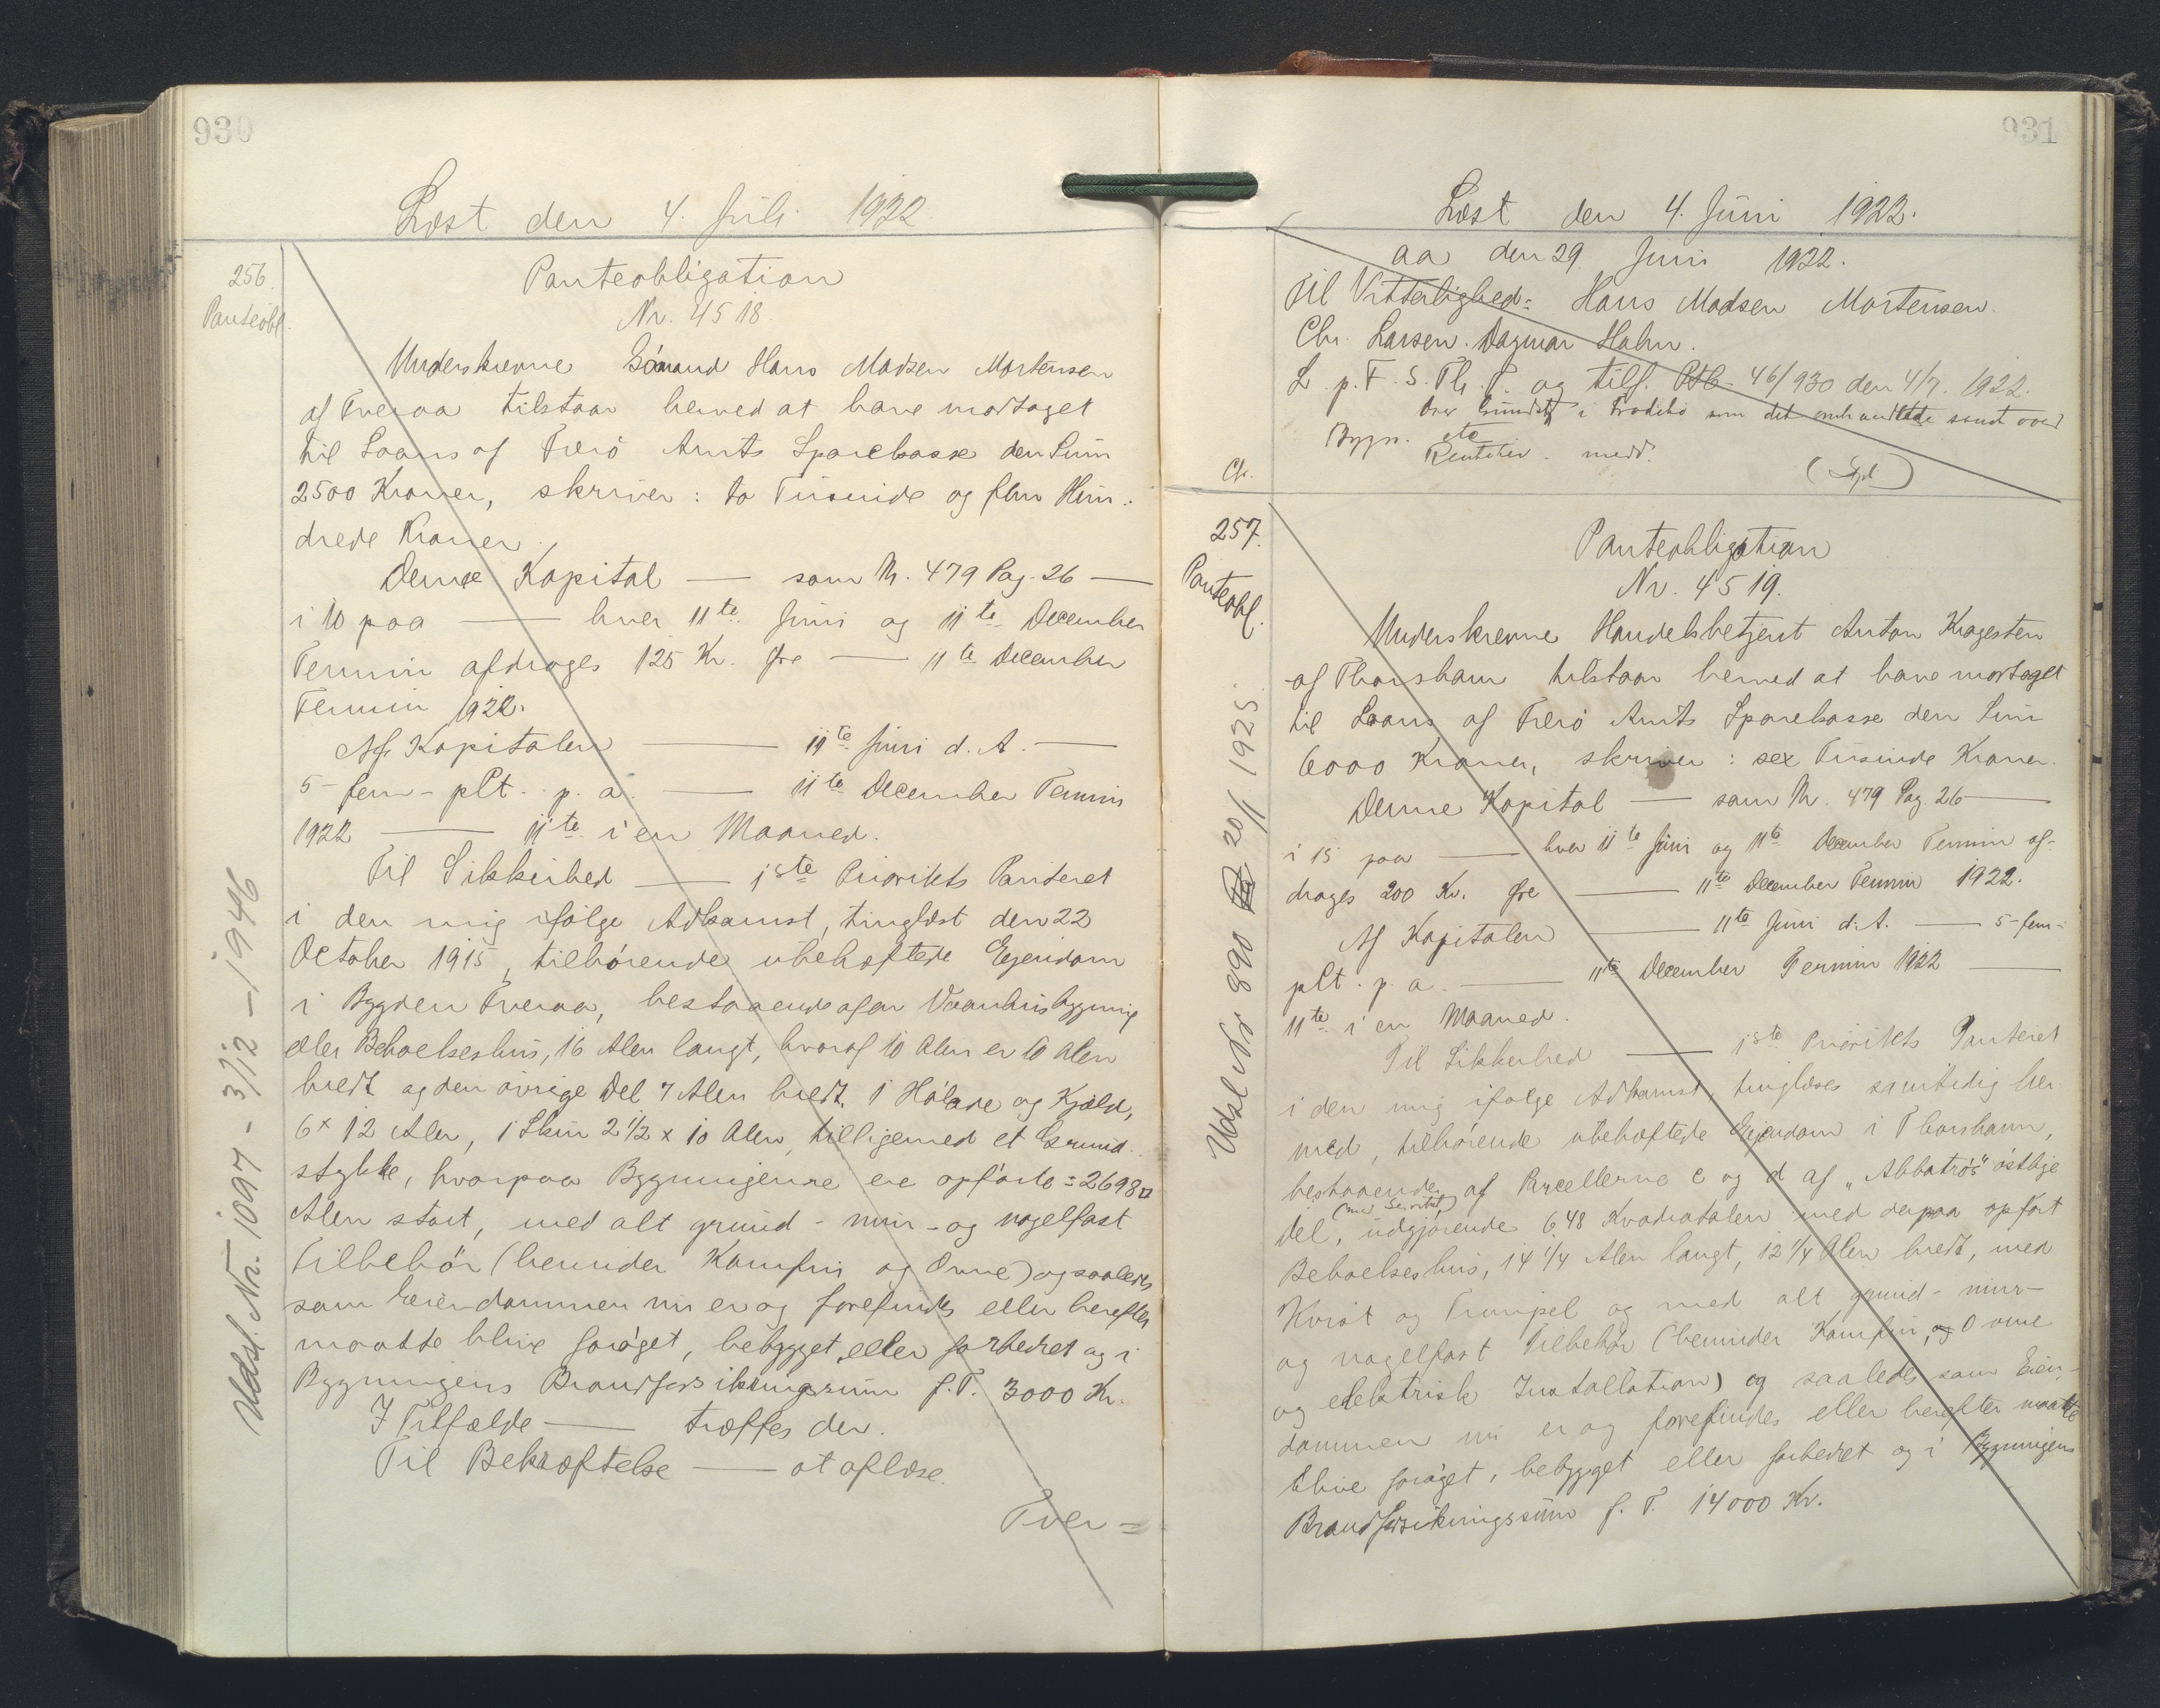 930
Læst den 4. Juli 1922
256.
Panteobl.
Panteobligation
Nr. 4518.
Underskrevne Sömand Hans Madsen Mortensen
af Tveraa tilstaar herved at have modtaget
til Laans af Færö Amts Sparekasse den Sum
2500 Kroner, skriver: to Tusinde og fem Hun-
drede Kroner.
Denne Kapital — som Nr. 479 Pag. 26 —
i 10 paa — hver 11te Juni og 11te December
Termin afdrages 125 Kr. Øre — 11te December
Termin 1922.
Af Kapitalen — 11te Juni d. A. —
5 - fem - pCt. p. a. — 11te December Termin
1922 — 11te i en Maaned.
Til Sikkerhed — 1ste Prioritets Panteret
i den mig ifölge Adkomst, tinglæst den 22
October 1915, tilhörende ubehæftede Ejendom
i Bygden Tveraa, bestaaende af en Vaanhusbygning
eller Beboelseshus, 16 Alen langt, hvoraf 10 Alen er 10 Alen
bredt og den övrige Del 7 Alen bredt, 1 Hölade og Kjald,
6 x 12 Alen, 1 Skur 2 1/2 x 10 Alen, tilligemed et Grund-
stykke, hvorpaa Bygningerne ere opförte = 2698 □
Alen stort, med alt grund- mur- og nagelfast
Tilbehör (herunder Komfur og Ovne) og saaledes
som Eiendommen nu er og forefindes eller herefter
maatte blive foröget, bebygget eller forbedret og i
Bygningens Brandforsikringssum f. T. 3000 Kr.
I Tilfælde — træffes der.
Til Bekræftelse — at aflæse.
Tver =
Udsl. Nr. 1097 - 3/12 - 1946
931
Læst den 4. Juni 1922.
aa den 29. Juni 1922.
Til Vitterlighed: Hans Madsen Mortensen.
Chr. Larsen. Dagmar Hahn.
L. p. F. S. Th. P. og tilf. Ptb. 46/930 den 4/7. 1922.
over Grundst. i Frodebö som det omhandlede samt over
Bygn. etc
medd.
Ch.
257.
Panteobl.
Panteobligation
Nr. 4519.
Underskrevne Handelsbetjent Anton Kragesten
af Thorshavn tilstaar herved at have modtaget
til Laans af Færö Amts Sparekasse den Sum
6000 Kroner, skriver: sex Tusinde Kroner.
Denne Kapital — som Nr. 479 Pag. 26 —
i 15 paa — hver 11te Juni og 11te December Termin af-
drages 200 Kr. Øre — 11te December Termin 1922.
Af Kapitalen — 11te Juni d. A. — 5 - fem -
pCt. p. a. — 11te December Termin 1922 —
11te i en Maaned.
Til Sikkerhed — 1ste Prioritets Panteret
i den mig ifølge Adkomst, tinglæses samtidig her-
med, tilhørende ubehæftede Ejendom i Thorshavn,
bestaaende af Parcellerne c og d af „Abbatrös" östlige
Del, udgjørende 648 Kvadratalen med derpaa opført
Beboelseshus, 14 1/4 Alen langt, 12 1/4 Alen bredt, med
Kvist og Frunspel og med alt grund- mur-
og nagelfast Tilbehör (herunder Komfur, og Ovne
og elektrisk Installation) og saaledes som Eien-
dommen nu er og forefindes eller herefter maatte
blive foröget, bebygget eller forbedret og i Bygningens
Brandforsikringssum f. T. 14000 Kr.
Udsl Nr 890 20/1 1925.